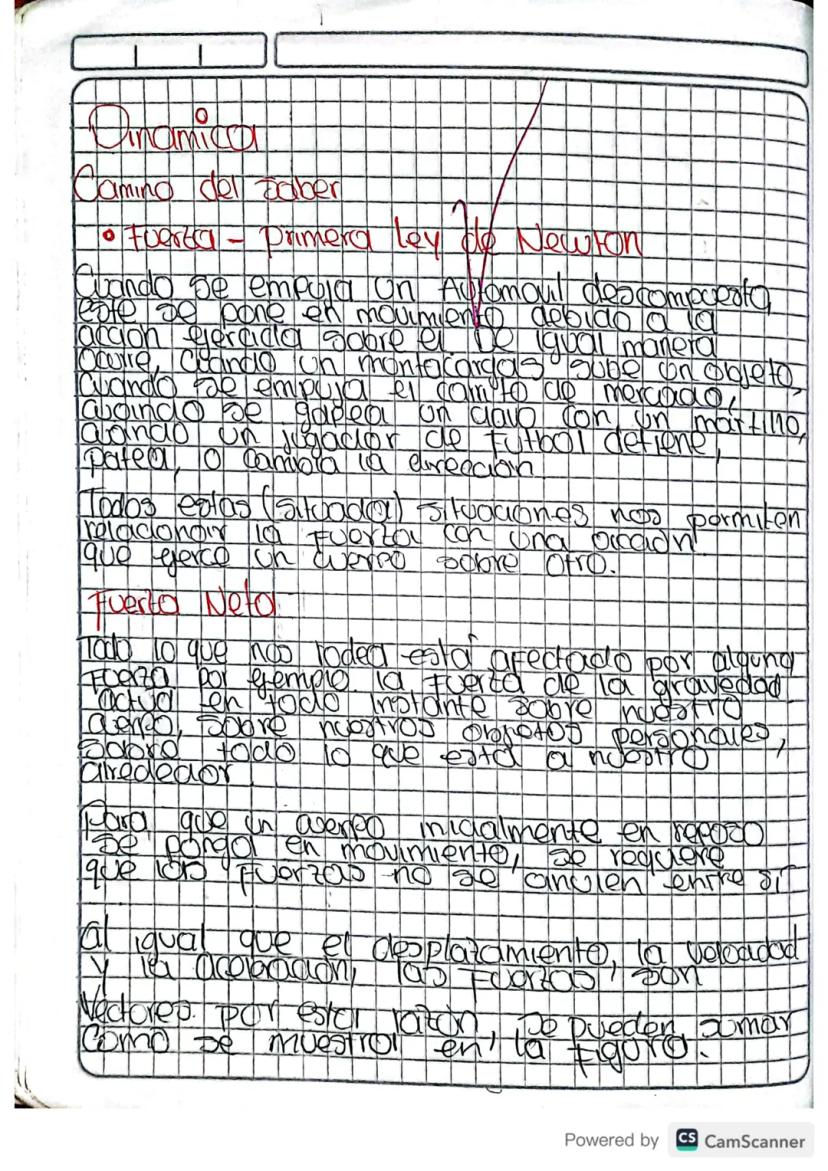 Dinamica
Camino del saber
• Fuerza - primera Ley de Newton
Cuando se empuja un Automovil descompuesto,
este se pone en movimiento debido a la
acción ejercida sobre el De igual manera
ocurre, cuando un montacargas sube un objeto,
cuando se empuja el carrito de mercado,
cuando se golpea un clavo con un martillo,
cuando un jugador de futbol detiene,
patea, o cambia la dirección
Todos estas (situador) situaciones nos permiten
relacionar la fuerza con una acción
que ejerce un cuerpo sobre otro.
Fuerza Neta
Todo lo que nos rodea está afectado por alguna
fuerza por ejemplo la fuerza de la gravedad
actua en todo instante sobre nuestro
cuerpo, sobre nuestros objetos personales,
sobre todo lo que está a nuestro
alrededor
Para que un cuerpo inicialmente en repozo
se ponga en movimiento, se requiere
que las fuerzas no se anulen entre si
al igual que el desplazamiento, la velocidad
y la aceleración, las fuerzas, son
vectores por esta razón, se pueden sumar
como se muestra en la figura.
Powered by CS CamScanner